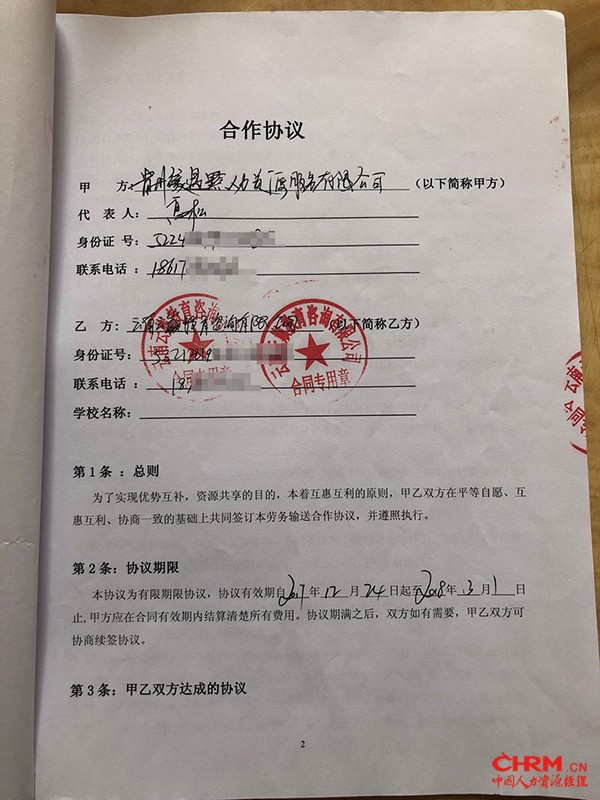 合作协议
甲 方: 人力资源服务有限公司 (以下简称甲方)
代 表 人:
身份证 号: 5224
联系电话 : 18617
乙 方: 云南 教育咨询有限公司 (以下简称乙方)
身份证号:
联系电话 : 18
学校名称:
云南云 教育咨询有限公司
合同专用章
云南云 教育咨询有限公司
合同专用章
第 1 条 : 总则
为了实现优势互补，资源共享的目的，本着互惠互利的原则，甲乙双方在平等自愿、互
惠互利、协商一致的基础上共同签订本劳务输送合作协议，并遵照执行。
第 2 条: 协议期限
本协议为有限期限协议，协议有效期自2017年 12 月 24 日起至2018年 3 月 1 日
止,甲方应在合同有效期内结算清楚所有费用。协议期满之后，双方如有需要，甲乙双方可
协商续签协议。
第 3 条: 甲乙双方达成的协议
2
CHRM.CN
中国人力资源经理